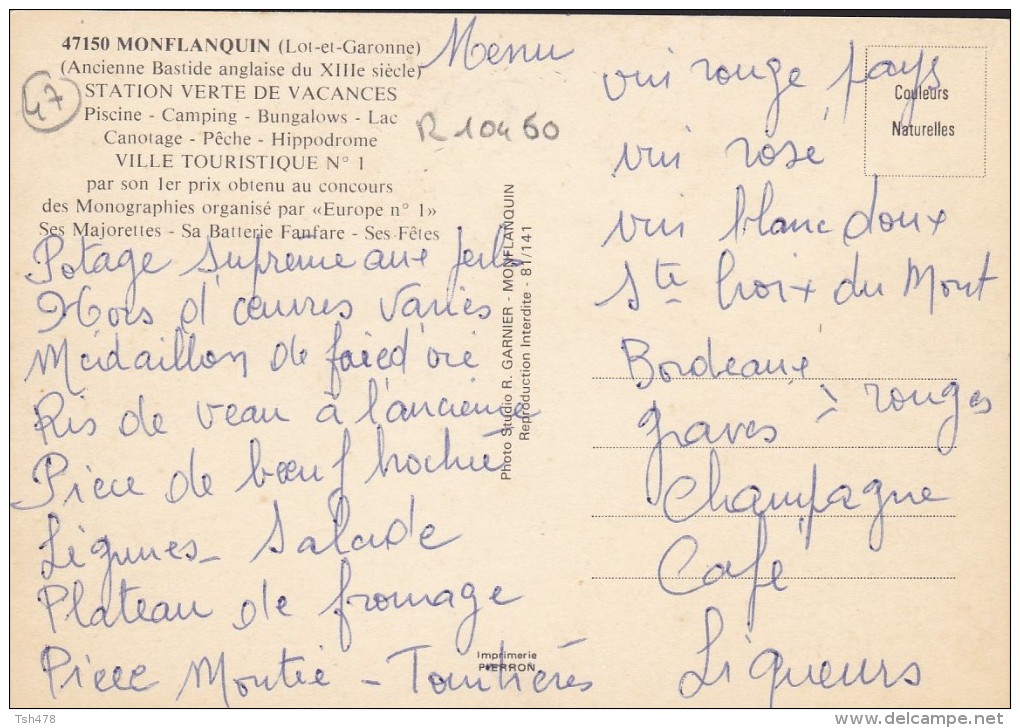 47150 MONFLANQUIN (Lot-et-Garonne)
(Ancienne Bastide anglaise du XIIIe siècle)
STATION VERTE DE VACANCES
Piscine - Camping - Bungalows - Lac
Canotage - Pêche - Hippodrome
VILLE TOURISTIQUE N° 1
par son 1er prix obtenu au concours
des Monographies organisé par «Europe n° 1»
Ses Majorettes - Sa Batterie Fanfare - Ses Fêtes
47
R 10460
Menu
Potage Suprême aux
Hors d'œuvres Variés
Médaillon de foie d'oie
Ris de veau à l'ancienne
Pièce de bœuf
Légumes - Salade
Plateau de fromage
Pièce Montée -
Photo Studio R. GARNIER - MONFLANQUIN
Reproduction Interdite - 81/141
Imprimerie
PIERRON
Couleurs
Naturelles
vin rouge pays
vin rosé
vin blanc doux
Ste Croix du Mont
Bordeaux
Graves > rouges
Champagne
Café
Liqueurs
Tsh478
http://www.delcampe.net